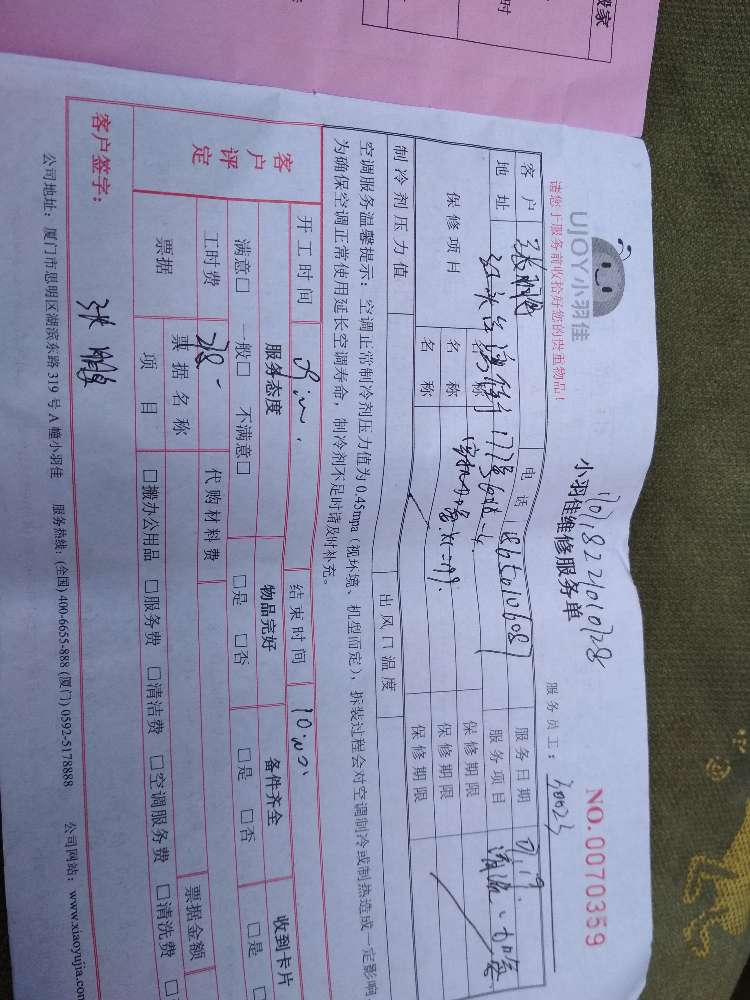 搬家
时
UJOY小羽佳
请您于服务前收拾好您的贵重物品!
小羽佳维修服务单
NO.0070359
服务员工: 30023
客户
电话
服务日期
地址
服务项目
保修项目 名称 保修期限
名称 保修期限
名称 保修期限
制冷剂压力值 出风口温度
空调服务温馨提示: 空调正常制冷剂压力值为0.45mpa (视环境、机型而定), 拆装过程会对空调制冷或制热造成一定影响
为确保空调正常使用延长空调寿命, 制冷剂不足时请及时补充。
开工时间 结束时间 10:00
客户评定 服务态度 物品完好 备件齐全 收到卡片
满意□ 一般□ 不满意□ □是 □否 □是 □否 □是
工时费 代购材料费
票据 票据名称 票据金额
项目 □搬办公用品 □服务费 □清洁费 □空调服务费 □清洗费
客户签字:
公司地址: 厦门市思明区湖滨东路319号A幢小羽佳 服务热线: (全国) 400-6655-888 (厦门) 0592-5178888 公司网站: www.xiaoyujia.com